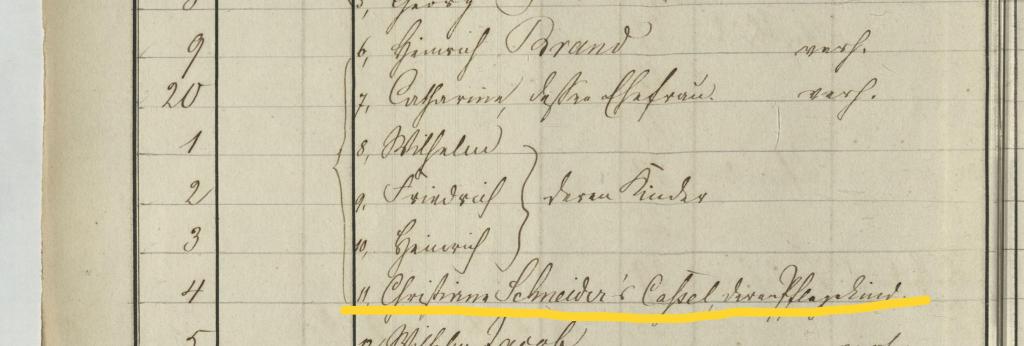 9 6, Heinrich Brand verh.
20 7, Catharine, dessen Ehefrau. verh.
1 8, Wilhelm
2 9, Friedrich deren Kinder
3 10, Heinrich
4 11, Christiane Schneider's Cassel, deren Pflegekind.
5 12, Wilhelm Jacob